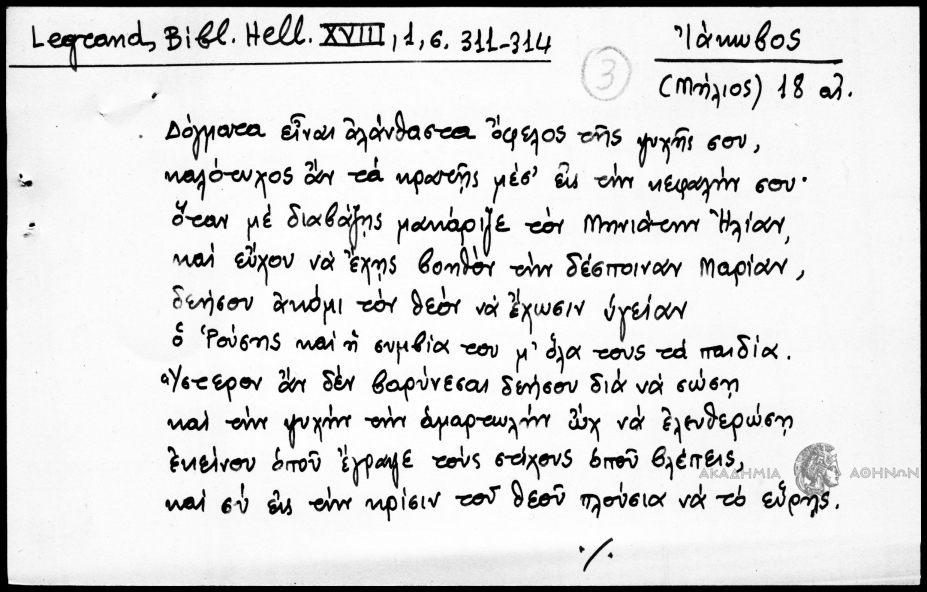 Legrand, Bibl. Hell. XVIII, 1, σ. 311-314
Ἰάκωβος
3
(Μήλιος) 18 αἰ.
Δόγματα εἶναι ἀλάνθαστα ὄφελος τῆς ψυχῆς σου,
καλότυχος ἂν τὰ κρατῇς μέσ' εἰς τὴν κεφαλήν σου·
ὅταν μὲ διαβάζῃς μακάριζε τὸν Μηνιάτην Ἠλίαν,
καὶ εὔχου νὰ ἔχῃς βοηθὸν τὴν δέσποιναν Μαρίαν,
δεήσου ἀκόμι τὸν θεὸν νὰ ἔχωσιν ὑγείαν
ὁ Ῥούσης καὶ ἡ συμβία του μ' ὅλα τους τὰ παιδία.
Ὕστερον ἂν δὲν βαρύνεσαι δεήσου διὰ νὰ σώσῃ
καὶ τὴν ψυχὴν τὴν ἁμαρτωλὴν ὢχ νὰ ἐλευθερώσῃ
ἐκείνου ὁποῦ ἔγραψε τοὺς στίχους ὁποῦ βλέπεις,
καὶ σὺ εἰς τὴν κρίσιν τοῦ θεοῦ πλούσια νὰ τὸ εὕρῃς.
ΑΚΑΔΗΜΙΑ ΑΘΗΝΩΝ
./.